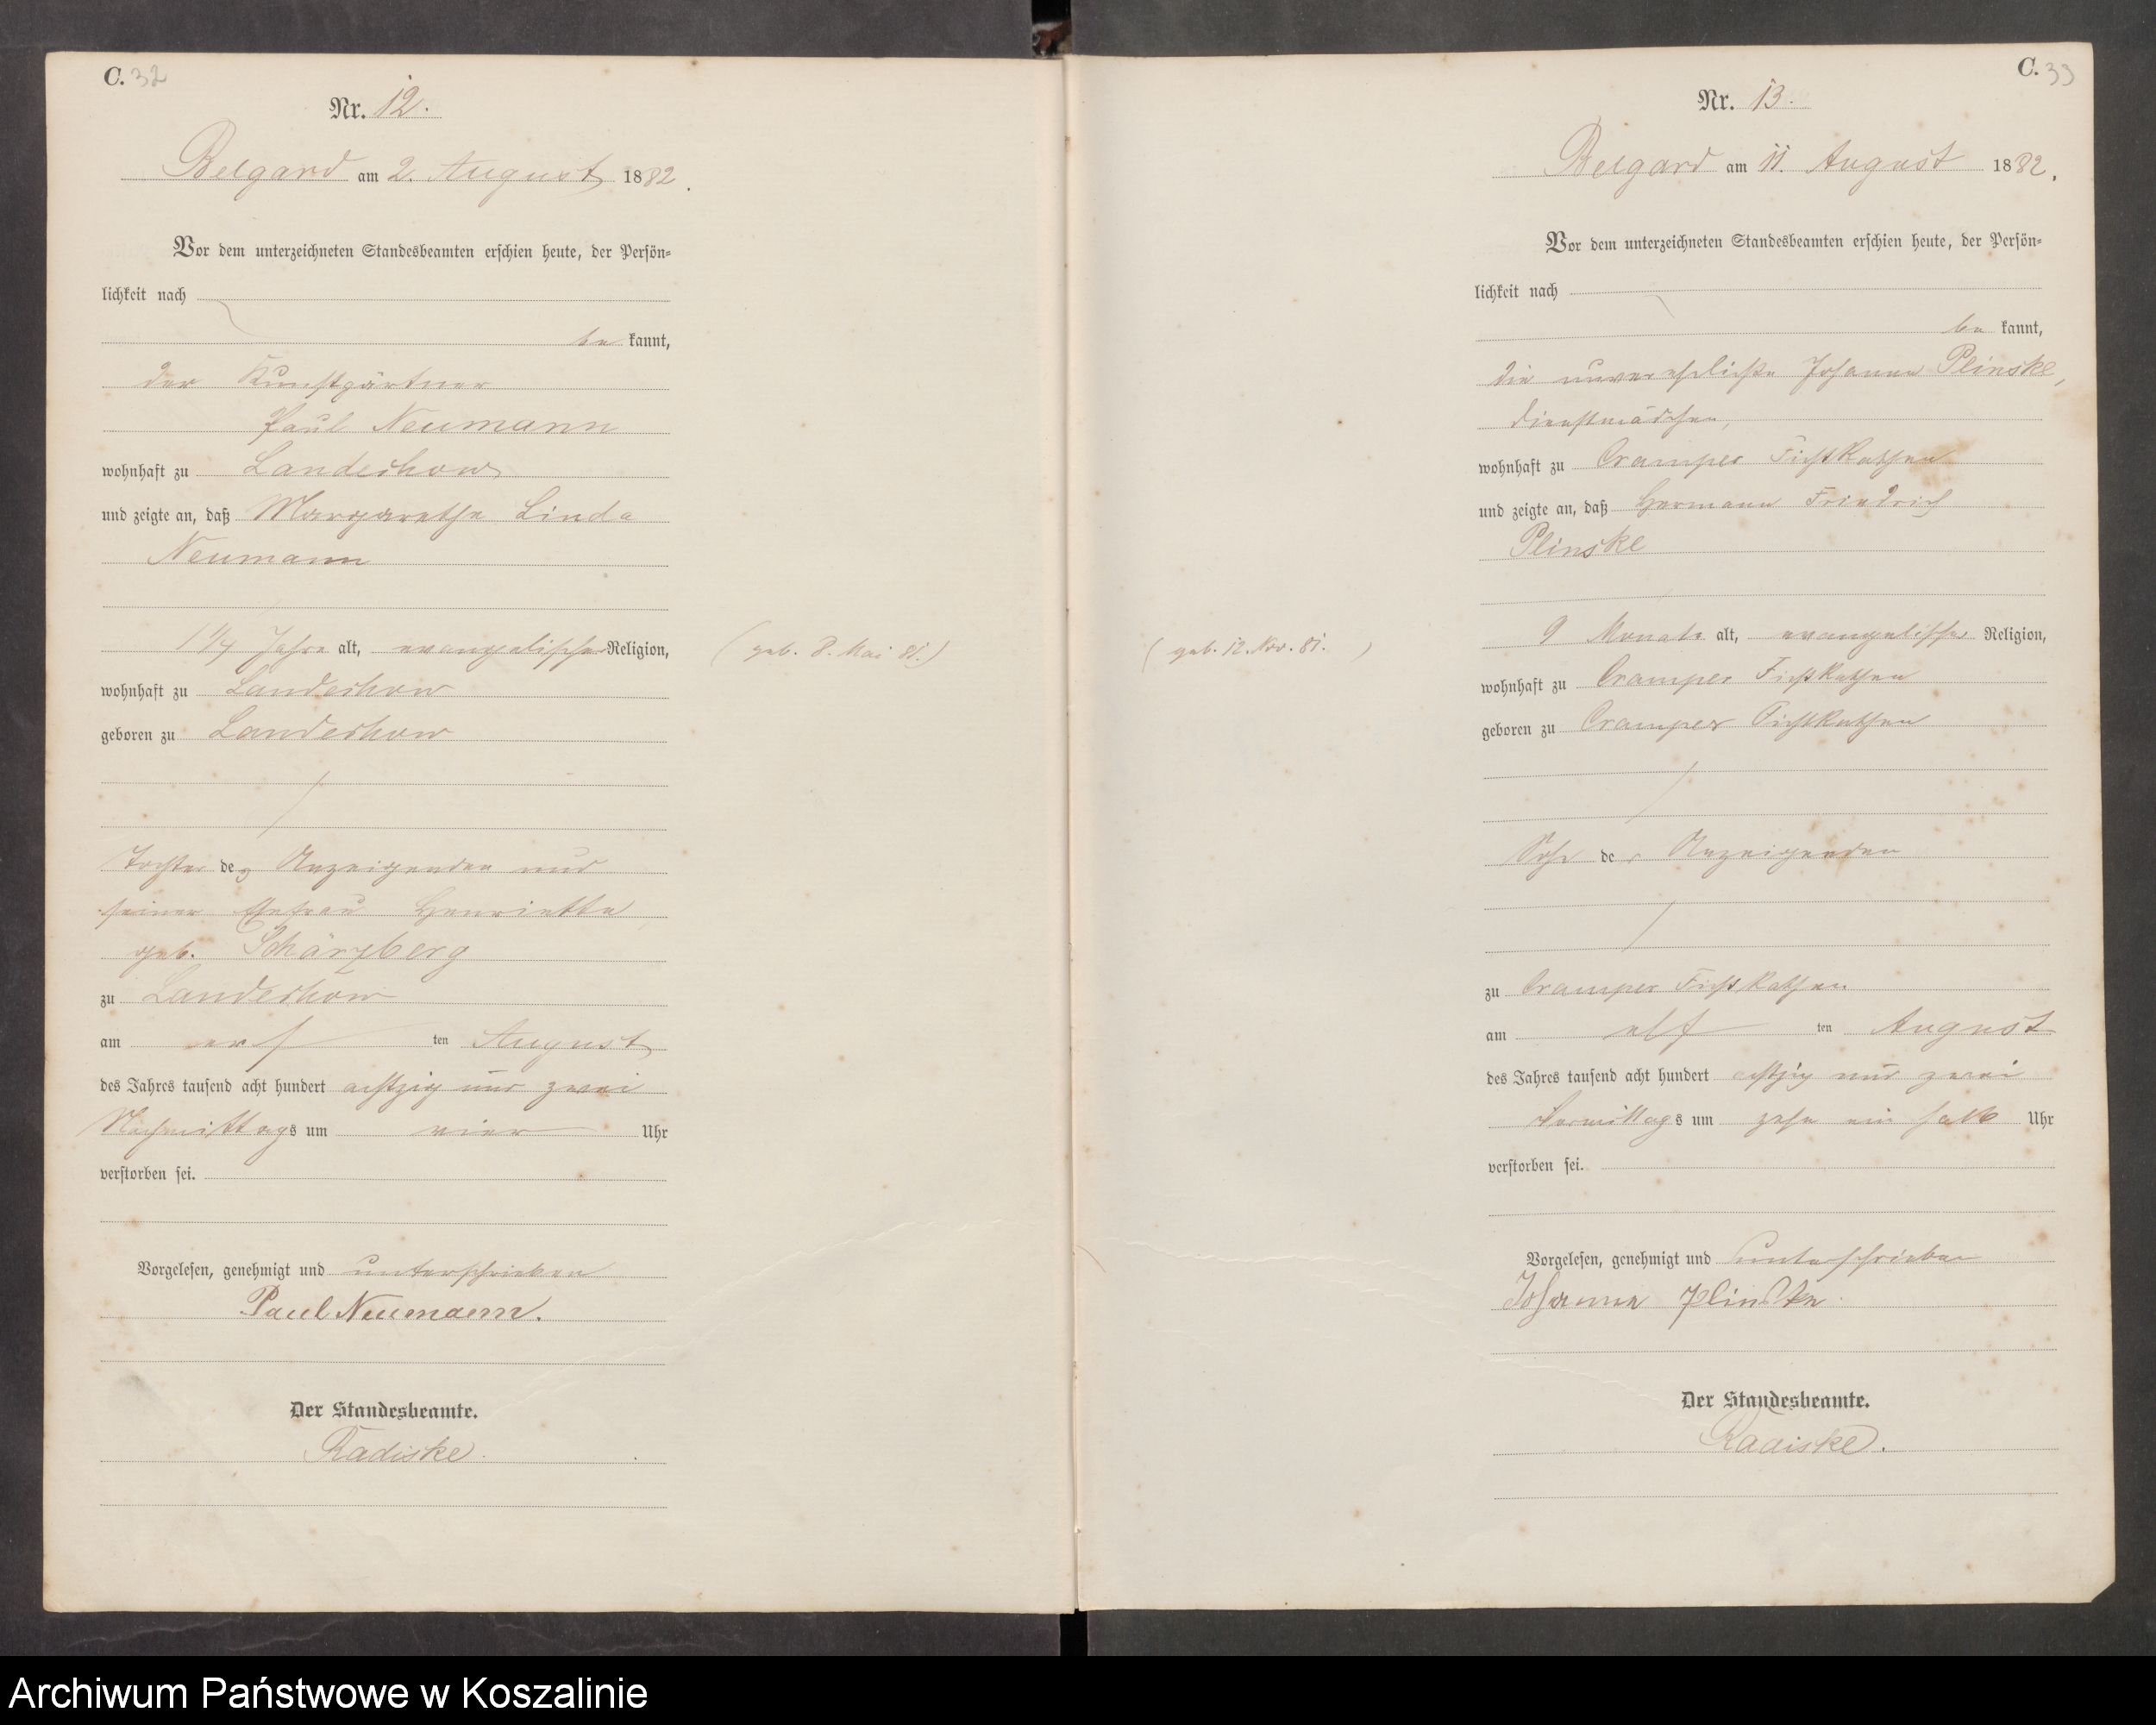 C. 32
Nr. 12.
Belgard am 2. August 1882.
Vor dem unterzeichneten Standesbeamten erschien heute, der Persön-
lichkeit nach
be kannt,
der Kunstgärtner
Paul Neumann
wohnhaft zu Landechow
und zeigte an, daß Margarethe Linda
Neumann
1 1/4 Jahre alt, evangelischer Religion,
(geb. 8. Mai 81.)
wohnhaft zu Landechow
geboren zu Landechow
Tochter des Anzeigenden und
seiner Ehefrau Henriette
geb.
zu Landechow
am ers ten August
des Jahres tausend acht hundert achtzig und zwei
Nachmittags um vier Uhr
verstorben sei.
Vorgelesen, genehmigt und unterschrieben
Paul Neumann.
Der Standesbeamte.
Radiske.
C. 33
Nr. 13.
Belgard am 11. August 1882.
Vor dem unterzeichneten Standesbeamten erschien heute, der Persön-
lichkeit nach
be kannt,
die unverehelichte Johanne Plinske,
Dienstmädchen,
wohnhaft zu Cramper Fichtkathen
und zeigte an, daß Hermann Friedrich
Plinske
9 Monate alt, evangelischer Religion,
(geb. 12. Nov. 81.)
wohnhaft zu Cramper Fichtkathen
geboren zu Cramper Fichtkathen
Sohn der Anzeigenden
zu Cramper Fichtkathen
am elf ten August
des Jahres tausend acht hundert achtzig und zwei
Vormittags um zehn ein halb Uhr
verstorben sei.
Vorgelesen, genehmigt und unterschrieben
Johanne Plinske
Der Standesbeamte.
Radiske.
Archiwum Państwowe w Koszalinie